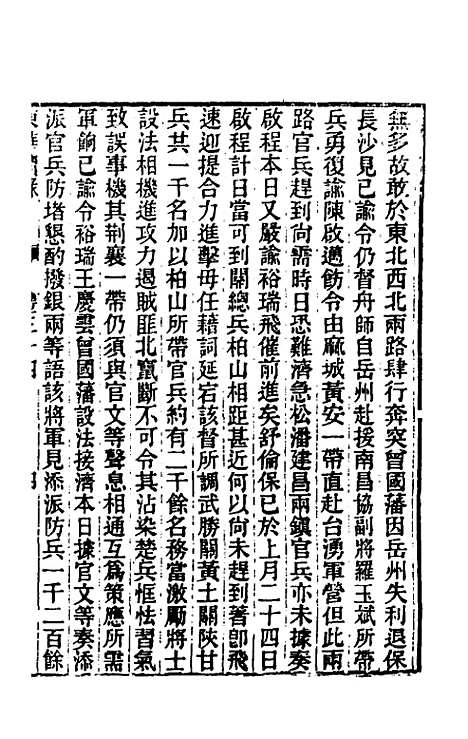 無多故敢於東北西北兩路肆行奔突曾國藩因岳州失利退保
長沙見已諭令仍督舟師自岳州赴援南昌協副將羅玉斌所帶
兵勇復諭陳啟邁飭令由麻城黃安一帶直赴台湧軍營但此兩
路官兵趕到尚需時日恐難濟急松潘建昌兩鎮官兵亦未據奏
啟程本日又嚴諭裕瑞飛催前進矣舒倫保已於上月二十四日
啟程計日當可到關總兵柏山相距甚近何以尚未趕到著卽飛
速迎提合力進擊毋任藉詞延宕該督所調武勝關黃土關陝甘
兵共一千名加以柏山所帶官兵約有二千餘名務當激勵將士
設法相機進攻力遏賊匪北竄斷不可令其沾染楚兵恇怯習氣
致誤事機其荆襄一帶仍須與官文等聲息相通互爲策應所需
軍餉已諭令裕瑞王慶雲曾國藩設法接濟本日據官文等奏添
派官兵防堵懇酌撥銀兩等語該將軍見添派防兵一千二百餘